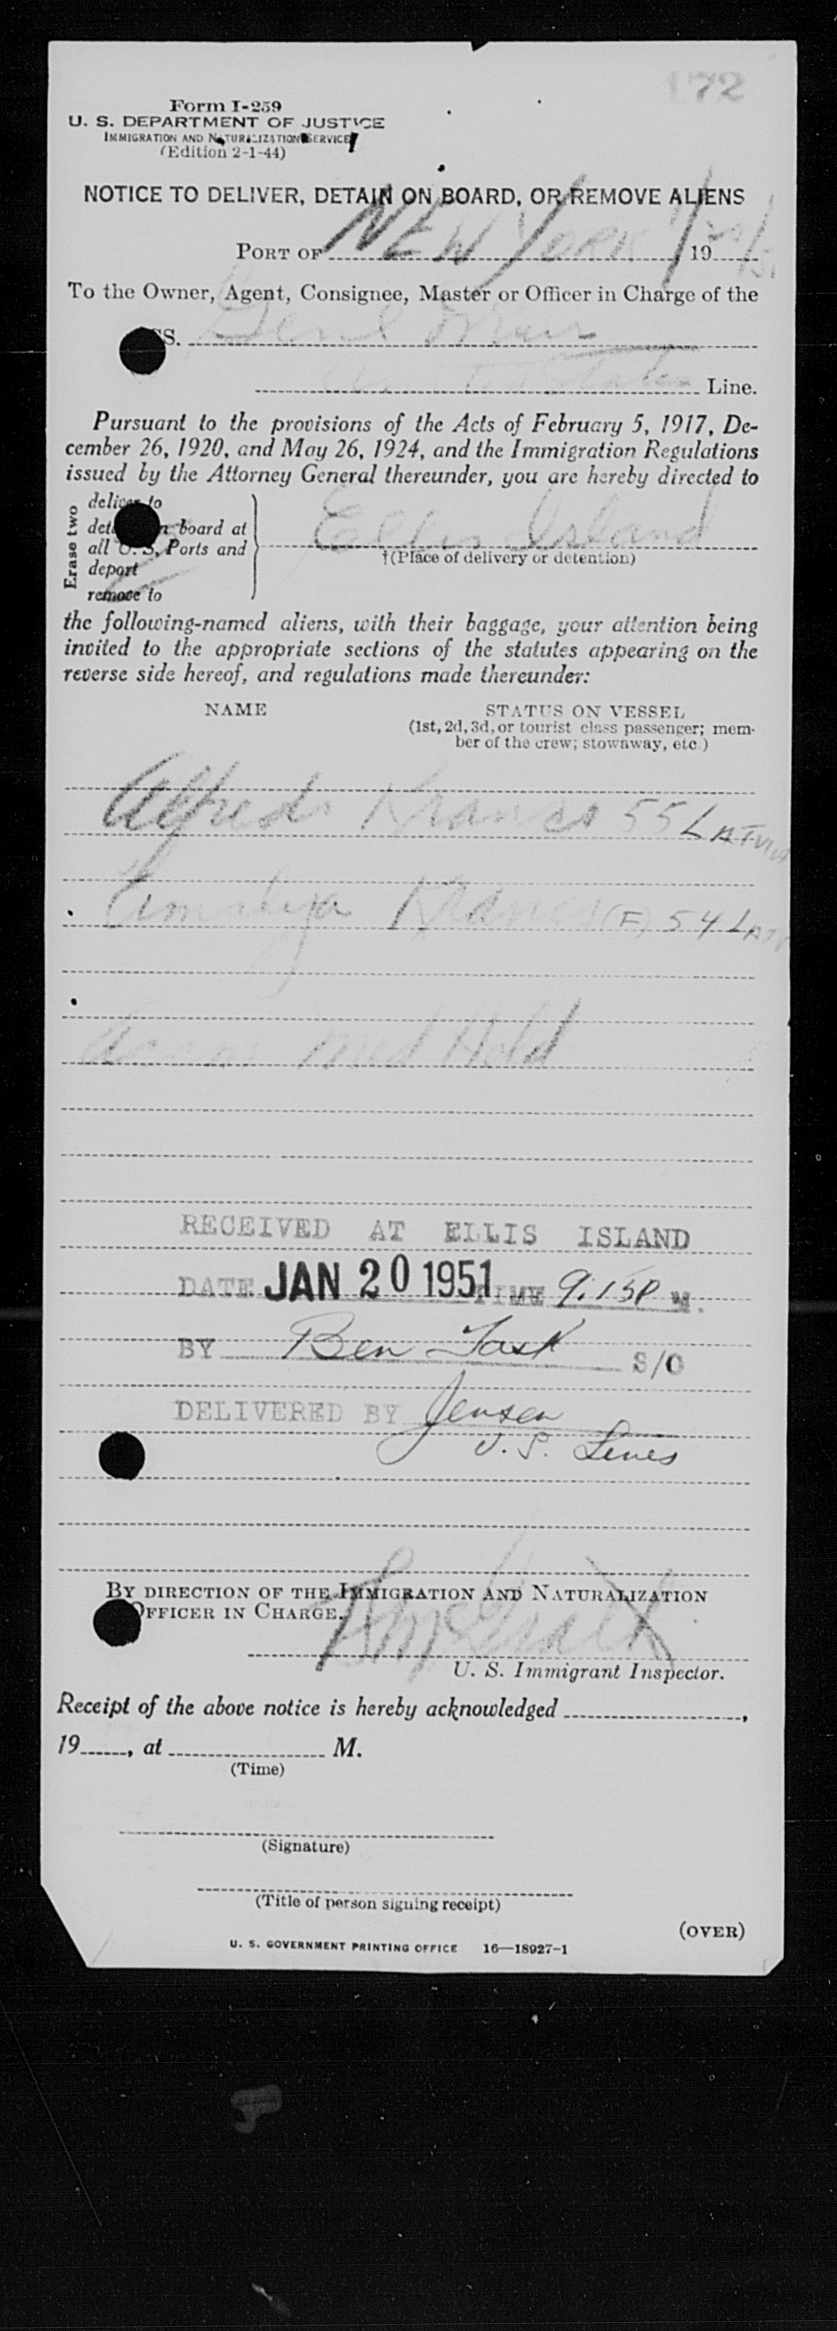 172
Form I-259
U. S. DEPARTMENT OF JUSTICE
IMMIGRATION AND NATURALIZATION SERVICE
(Edition 2-1-44)
NOTICE TO DELIVER, DETAIN ON BOARD, OR REMOVE ALIENS
PORT OF NEW YORK 1/20/51 19
To the Owner, Agent, Consignee, Master or Officer in Charge of the
SS. Genl Muir
Line.
Pursuant to the provisions of the Acts of February 5, 1917, De-
cember 26, 1920, and May 26, 1924, and the Immigration Regulations
issued by the Attorney General thereunder, you are hereby directed to
Erase two
deliver to
detain on board at
all U. S. Ports and
deport
remove to
Ellis Island
†(Place of delivery or detention)
the following-named aliens, with their baggage, your attention being
invited to the appropriate sections of the statutes appearing on the
reverse side hereof, and regulations made thereunder:
NAME STATUS ON VESSEL
(1st, 2d, 3d, or tourist class passenger; mem-
ber of the crew; stowaway, etc.)
Alfreds Krancs 55 LATVIA
Amalija Krancs (F) 54 LATV
Med Hold
RECEIVED AT ELLIS ISLAND
DATE JAN 20 1951 TIME 9.15P M.
BY Ben Task S/O
DELIVERED BY Jensen
U. S. Lines
BY DIRECTION OF THE IMMIGRATION AND NATURALIZATION
OFFICER IN CHARGE.
R McGrath
U. S. Immigrant Inspector.
Receipt of the above notice is hereby acknowledged ,
19 , at M.
(Time)
(Signature)
(Title of person signing receipt)
(OVER)
U. S. GOVERNMENT PRINTING OFFICE 16—18927-1